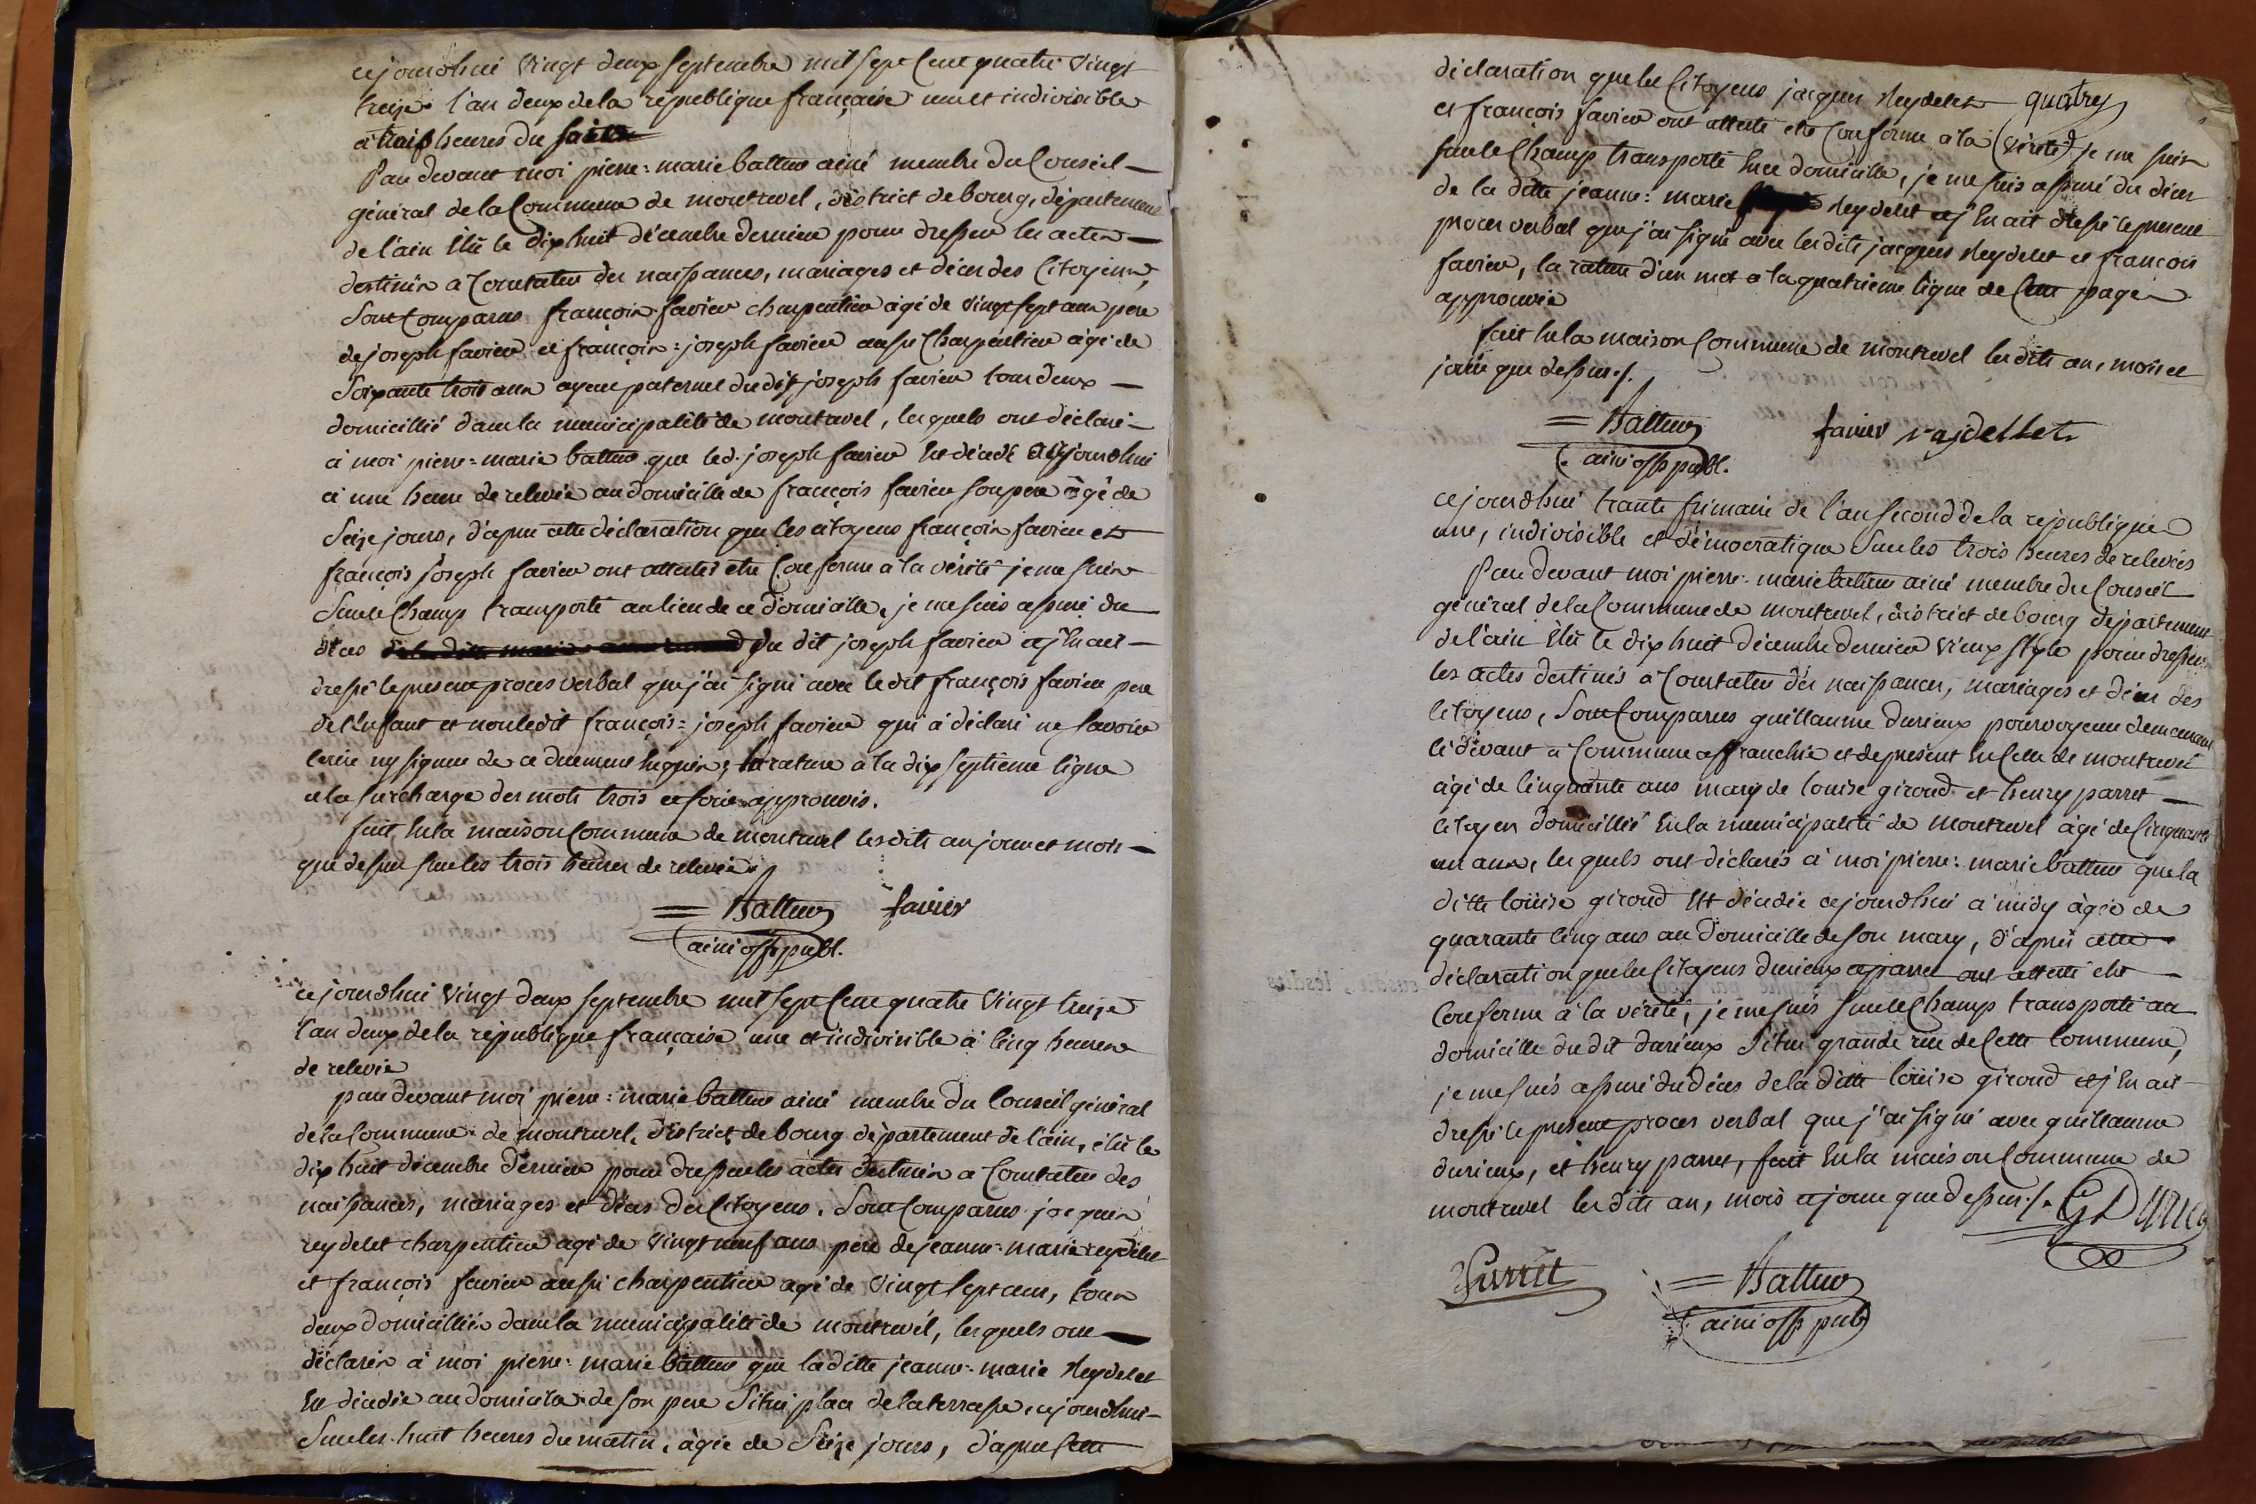 cejourdhui vingt deux septembre mil sept cent quatre vingt
treize l'an deux de la république française une et indivisible
à trois heures du soir
Par devant moi pierre=marie battur ainé membre du Conseil
général de la Commune de montrevel, district de bourg, département
de l'ain Elu le dix huit décembre dernier pour dresser les actes
destinés a Constater des naissances, mariages et décès des Citoyens,
Sont Comparus françois favier charpentier agé de vingt sept ans pere
de joseph favier et françois=joseph favier aussi Charpentier agé de
Soixante trois ans ayeul paternel dudit joseph favier tous deux
domicillié dans la municipalité de montrevel, lesquels ont déclaré
à moi pierre=marie battur que led. joseph favier Est décédé cejourdhui
à une heure de relevée au domicille de françois favier son pere âgé de
Seize jours, d'après cette déclaration que les citoyens françois favier et
françois joseph favier ont attesté etre Conforme a la vérité je me suis
Sur le Champ transporté au lieu de ce domicille, je me suis assuré du
décès du dit joseph favier et j'En ait
dressé le présent proces verbal que j'ai signé avec ledit françois favier pere
de l'Enfant et non ledit françois=joseph favier qui à déclaré ne savoir
lecrire ny signer de ce duement requis, la rature à la dix septieme ligne
et la surcharge des mots trois et soir approuvés.
fait En la maison Commune de montrevel lesdits an jour et mois
que dessus sur les trois heures de relevée ./.
Battur favier
ainé off. publ.
cejourdhui vingt deux septembre mil sept Cent quatre vingt treize
l'an deux de la république française une et indivisible à Cinq heures
de relevée
par devant moi pierre=marie battur ainé membre du Conseil général
de la Commune de montrevel, district de bourg département de l'ain, élu le
dix huit décembre dernier pour dresser les actes destinés a Constater des
naissances, mariages et décès des Citoyens. Sont Comparus jacques
reydelet charpentier agé de vingt neuf ans père de jeanne=marie reydelet
et françois favier aussi charpentier agé de vingt sept ans, tous
deux domicilliés dans la municipalité de montrevel, lesquels ont
déclarés à moi pierre=marie battur que la ditte jeanne=marie Reydelet
Est décédée au domicile de son pere Situé place de la terrasse, cejourdhui
Sur les huit heures du matin, agée de Seize jours, d'après Cette
déclaration que les Citoyens jacques Reydelet quatre
et françois favier ont attesté etre Conforme a la (vérité) je me suis
sur le Champ transporté En ce domicille, je me suis assuré du décès
de la ditte jeanne=marie Reydelet et j'En ait dressé le present
proces verbal que j'ai signé avec lesdits jacques Reydelet et françois
favier, la rature d'un mot a la quatrieme ligne de Cette page
approuvée
fait En la maison Commune de montrevel lesdits an, mois et
jour que dessus ./.
Battur favier raydellet
ainé off. publ.
cejourdhui trante frimaire de l'an second de la république
une, indivisible et démocratique Sur les trois heures de relevées
Par devant moi pierre=marie battur ainé membre du Conseil
général de la Commune de montrevel, district de bourg département
de l'ain Elu le dix huit décembre dernier vieux style pour dresser
les actes destinés a Constater des naissances, mariages et décès des
Citoyens, Sont Comparus guillaume durieux pourvoyeur demeurant
Ci devant a Commune affranchie et de présent En Celle de montrevel
agé de Cinquante ans mary de louise giroud et henry parret
citoyen domicillié En la municipalité de montrevel agé de Cinquante
un ans, lesquels ont déclarés à moi pierre=marie battur que la
ditte louise giroud Est décédée cejourdhui à midy agée de
quarante Cinq ans au domicille de son mary, d'après cette
déclaration que les Citoyens durieux et parret ont attesté etre
Conforme à la vérité, je me suis sur le Champ transporté au
domicille du dit durieux Situé grande rue de Cette Commune,
je me suis assuré du décès de la ditte louise giroud et j'En ait
dressé le présent proces verbal que j'ai signé avec guillaume
durieux, et henry parret, fait En la maison Commune de
montrevel lesdits an, mois et jour que dessus ./. G Durieu
Parrét Battur
ainé off. pub.